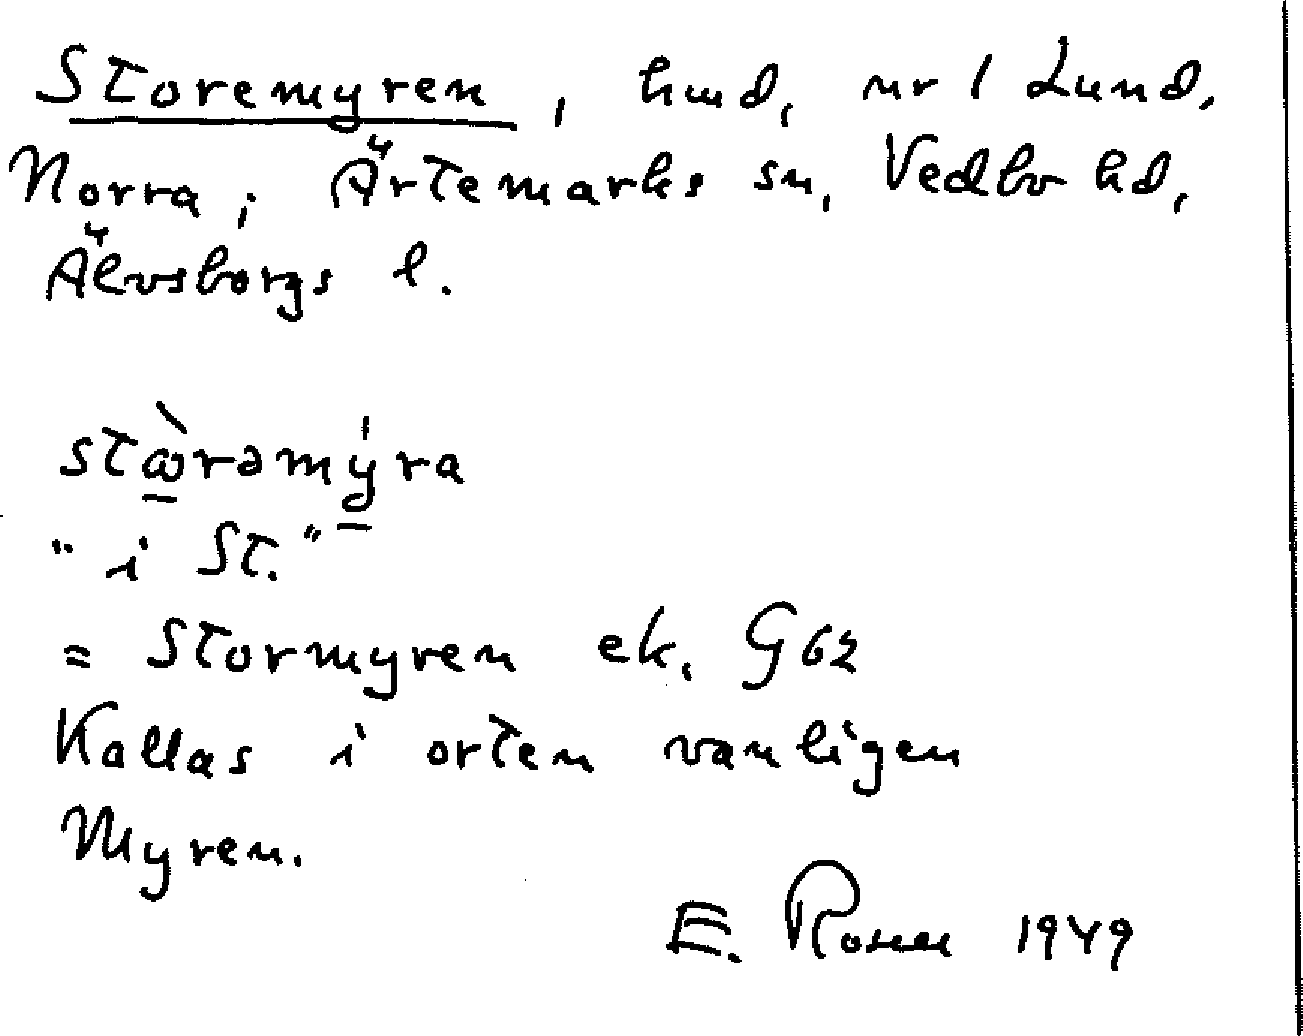 Storemyren, hmd, nr 1 Lund,
Norra, Ärtemarks sn, Vedbo hd,
Älvsborgs l.
stὼrəmýra
"i St."
= Stormyren ek. G62
Kallas i orten vanligen
Myren.
E. Rosen 1949